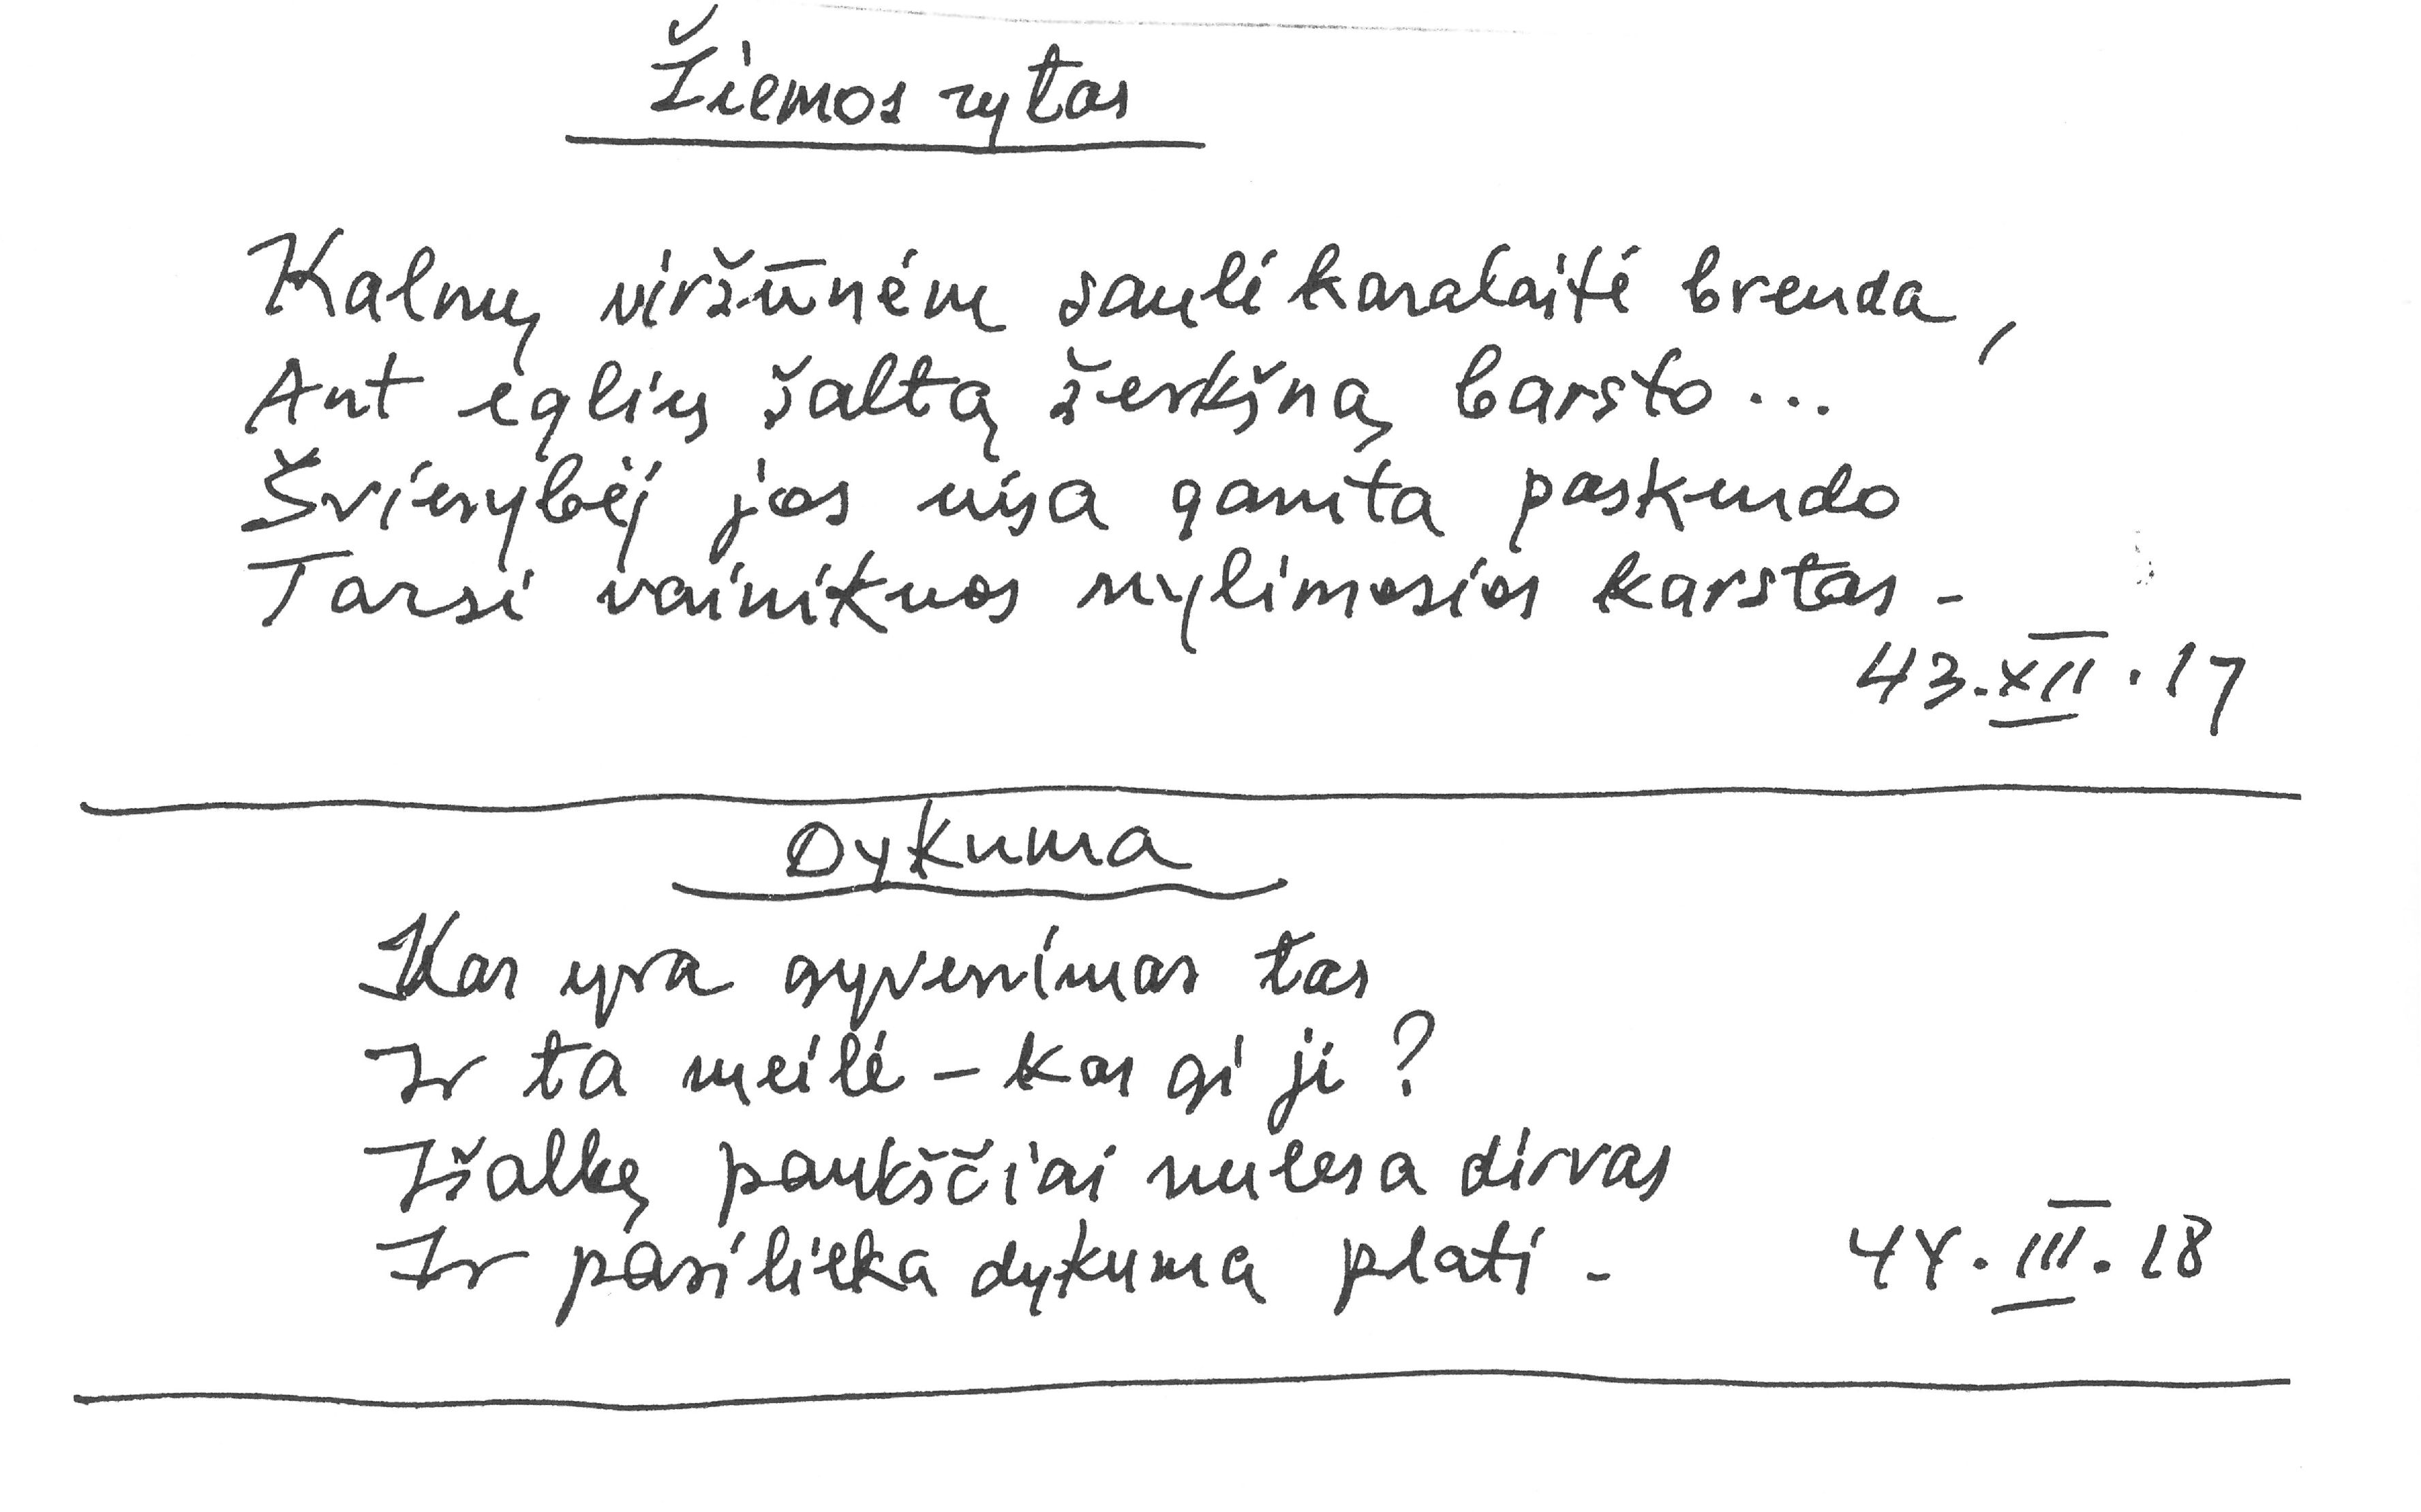 Žiemos rytas
Kalnų viršūnėm saulė karalaitė brenda,
Ant eglių šaltą šerkšną barsto...
Šviesybėj jos visa gamta paskendo
Tarsi vainikuos mylimosios karstas -
43.XII.17
Dykuma
Kas yra gyvenimas tas
Ir ta meilė - kas gi ji?
Išalkę paukščiai nulesa dirvas
Ir pasilieka dykuma plati - 44.III.18